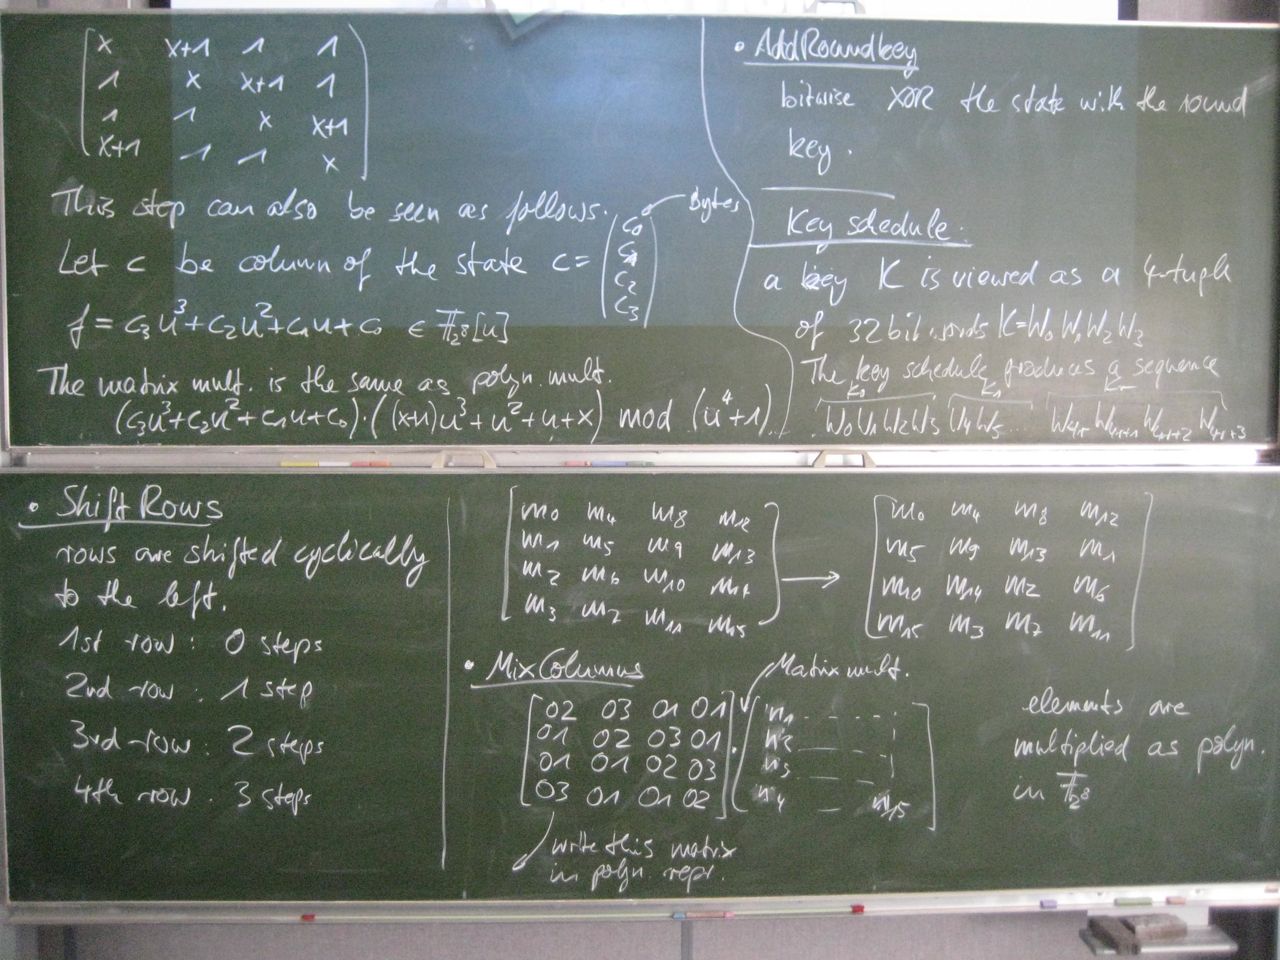 x x+1 1 1
1 x x+1 1
1 1 x x+1
x+1 1 1 x
This step can also be seen as follows.
Bytes
Let c be column of the state c = (c₀ c₁ c₂ c₃)
f = c₃u³+c₂u²+c₁u+c₀ ∈ 𝔽₂⁸[u]
The matrix mult. is the same as polyn. mult.
(c₃u³+c₂u²+c₁u+c₀)·((x+1)u³+u²+u+x) mod (u⁴+1)
• AddRoundkey
bitwise XOR the state with the round
key.
Key schedule.
a key K is viewed as a 4-tuple
of 32bit words K=W₀ W₁ W₂ W₃
The key schedule produces a sequence
K₀ K₁ Kᵣ
W₀W₁W₂W₃ W₄W₅... W₄ᵣ W₄ᵣ₊₁ W₄ᵣ₊₂ W₄ᵣ₊₃
• ShiftRows
rows are shifted cyclically
to the left.
1st row: 0 steps
2nd row: 1 step
3rd row: 2 steps
4th row: 3 steps
m₀ m₄ m₈ m₁₂ → m₀ m₄ m₈ m₁₂
m₁ m₅ m₉ m₁₃ m₅ m₉ m₁₃ m₁
m₂ m₆ m₁₀ m₁₄ m₁₀ m₁₄ m₂ m₆
m₃ m₇ m₁₁ m₁₅ m₁₅ m₃ m₇ m₁₁
• MixColumns
Matrix mult.
02 03 01 01 · n₁
01 02 03 01 n₂
01 01 02 03 n₃
03 01 01 02 n₄ n₁₅
write this matrix
in polyn. repr.
elements are
multiplied as polyn.
in 𝔽₂⁸